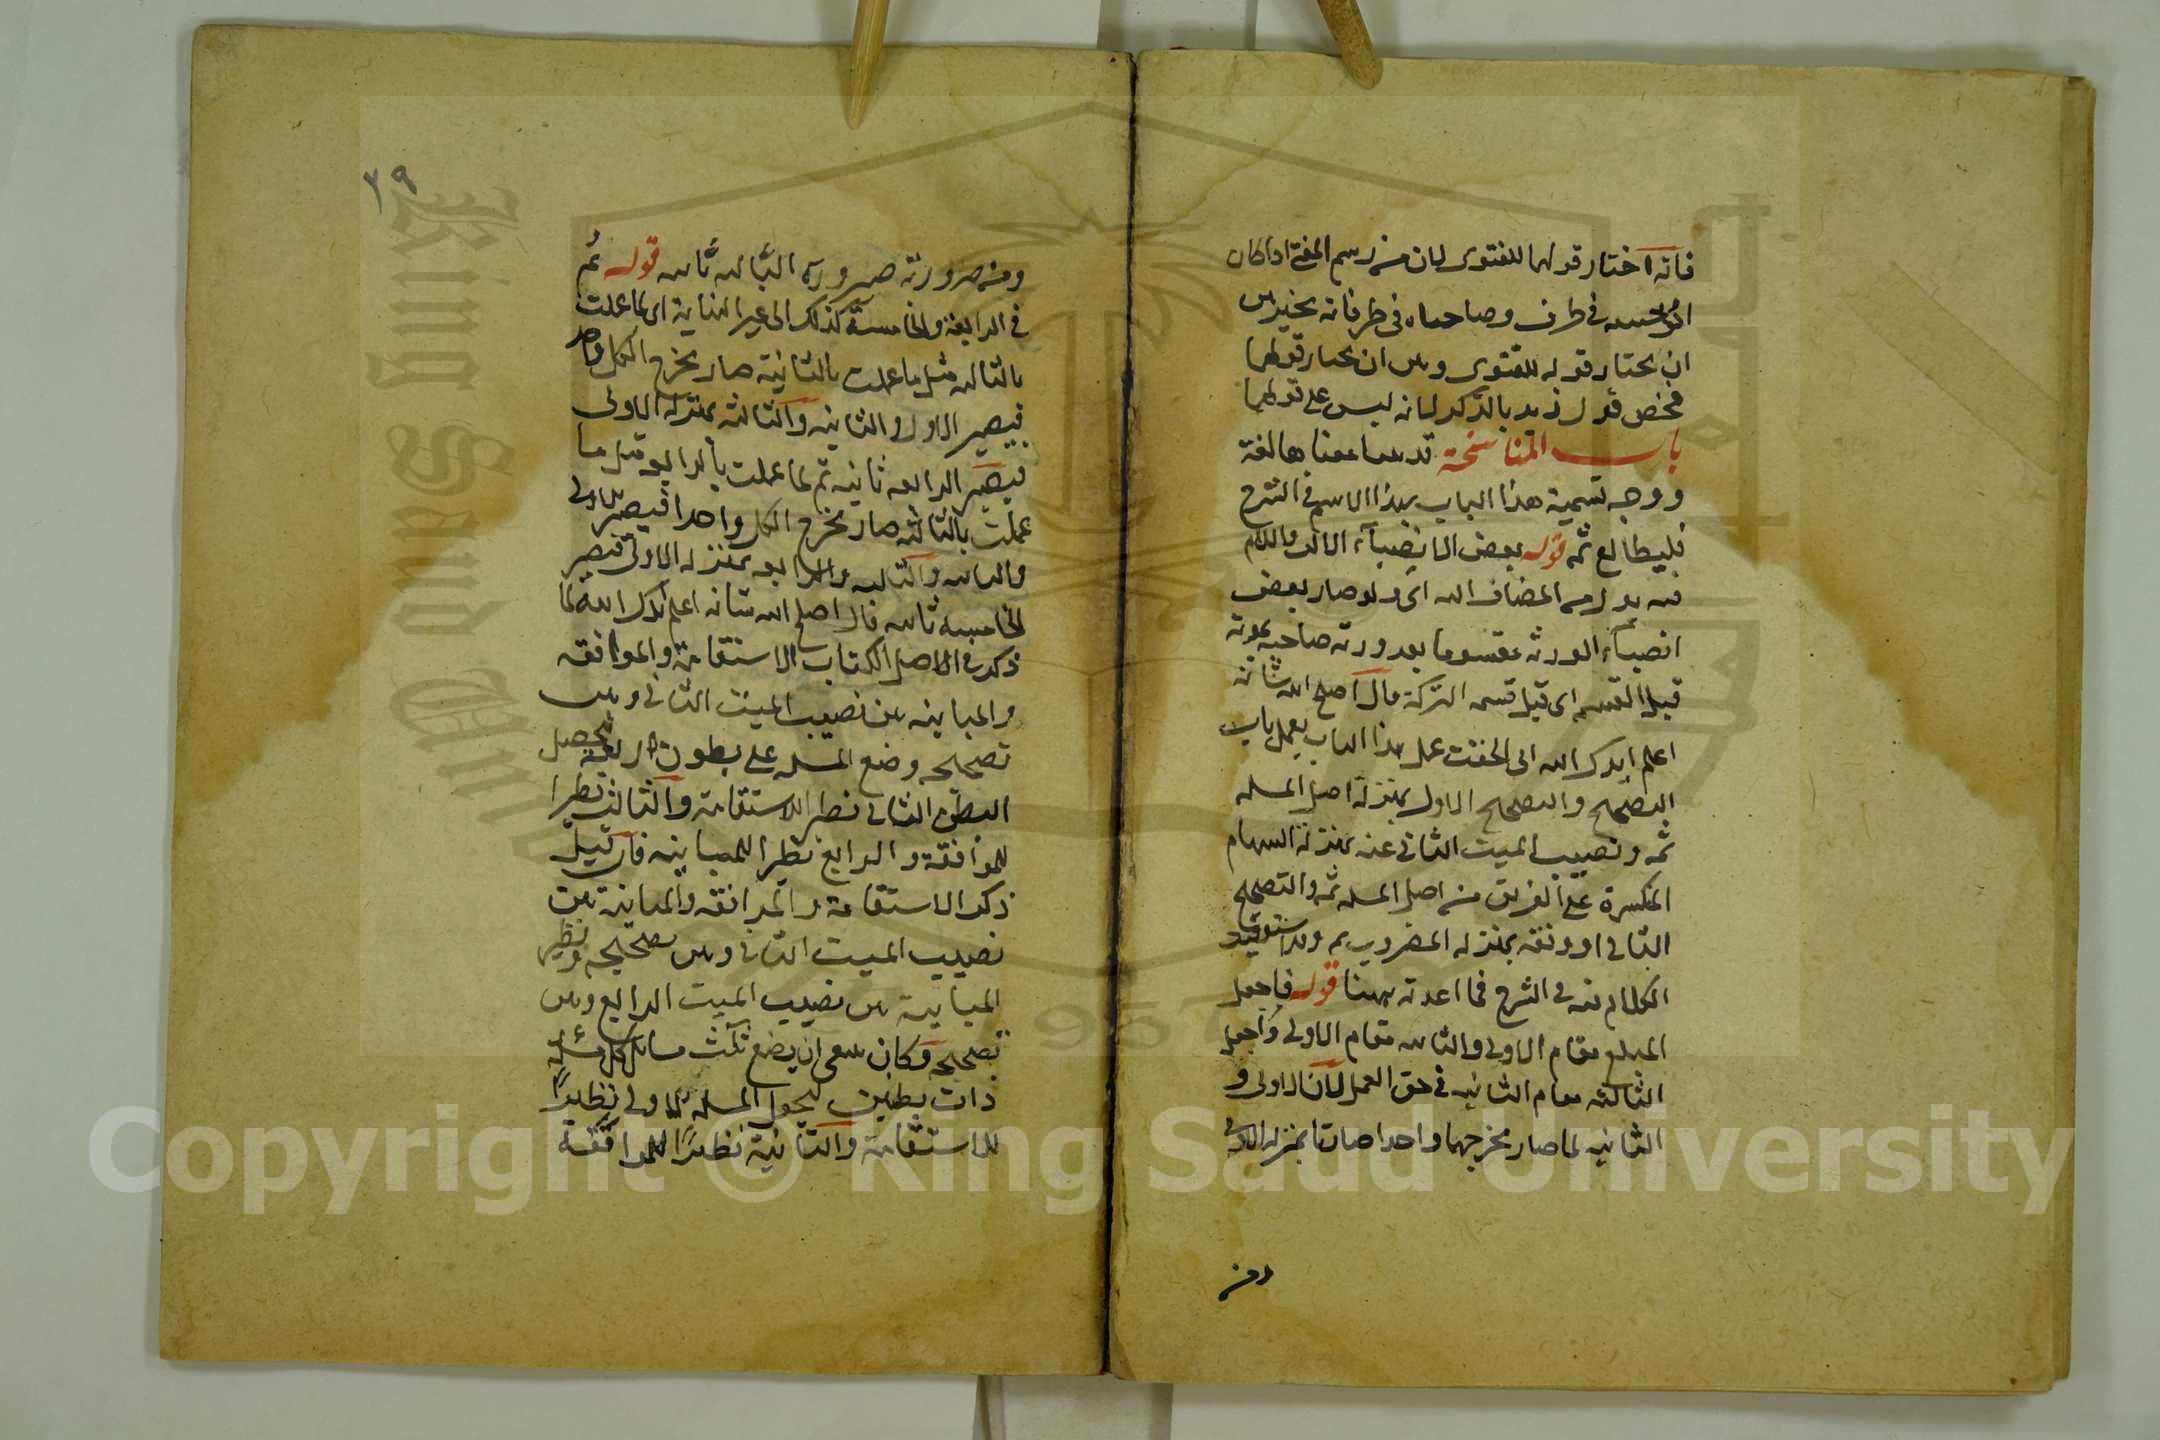 فانه اختار قولهما للفتوى لان من رسم المفتى اذا كان
ابو حنيفه فى طرف وصاحباه فى طرف فانه يخير بين
ان يختار قوله للفتوى وبين ان يختار قولهما
فخص قول زيد بالذكر لانه ليس على قولهما
باب المناسخة قد معناها لغة
ووجه تسمية هذا الباب بهذا الاسم فى الشرح
فليطالع ثمه قوله بعض الانصباء الالف واللام
فيه بدل من المضاف اليه اى ولو صار بعض
انصباء الورثه مقسوما بعد ورثة صاحبه بموته
قبل القسمه اى قبل قسمه التركة قال اصلح الله شانه
اعلم ايدك الله الى عمل هذا الباب بعمل باب
التصحيح والتصحيح الاول بمنزلة اصل المسله
ثمه ونصيب الميت الثانى عنه بمنزلة السهام
المنكسرة على الفريق من اصل المسله ثمه والتصحيح
الثانى او وفقه بمنزله المضروب ثمه
الكلام فيه فى الشرح فما اعدته ههنا قوله فاجعل
المبلغ مقام الاولى والثانيه مقام الاولى واجعل
الثالثه مقام الثانيه فى حق العمل لان الاولى و
الثانيه لما صار مخرجهما واحدا صارتا بمنزله الاولى
ومن
٣٩
ومن ضرورته صيرورة الثالثه ثانيه قوله ثم
فى الرابعة والخامسة كذلك الى غير النهاية اى لما عملت
بالثالثه مثل ما عملت بالثانية صار مخرج الكل واحد
فيصير الاولى والثانيه والثالثه بمنزله الاولى
فيصير الرابعه ثانيه ثم لما عملت بالرابعه مثل ما
عملت بالثالثه صار مخرج الكل واحدا فيصير الاولى
والثانيه والثالثه والرابعه بمنزله الاولى فيصير
الخامسه ثانيه قال اصلح الله شانه اعلم ايدك الله لما
ذكر فى الاصل الكتاب الاستقامة والموافقه
والمباينه بين نصيب الميت الثانى وبين
تصحيحه وضع المسله على بطون اربعة ليحصل
البطن الثانى نظير الاستقامة والثالث نظيرا
للموافقة والرابع نظيرا للمباينه فان قيل
ذكر الاستقامة والموافقه والمباينة بين
نصيب الميت الثانى وبين تصحيحه ونظير
المباينة بين نصيب الميت الرابع وبين
تصحيحه وكان ينبغى ان يضع ثلث مسائل كل مسئلة
ذات بطنين ليحول المسله الاولى نظيرًا
للاستقامة والثانية نظيرًا للموافقة
Copyright © King Saud University